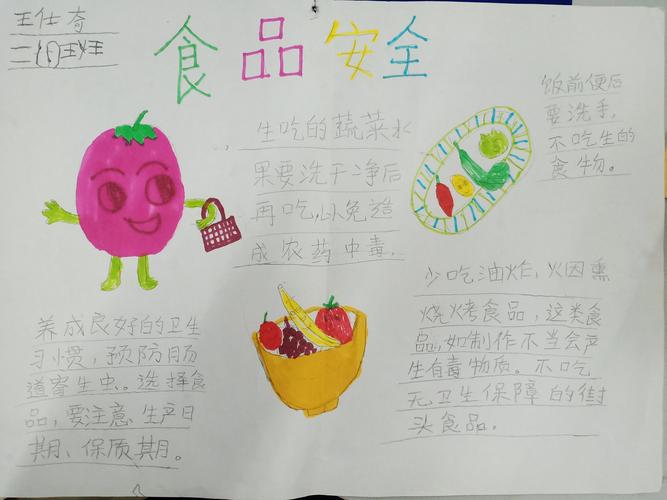 王仕奇
二（1）班
食品安全
生吃的蔬菜水
果要洗干净后
再吃，以免造
成农药中毒，
饭前便后
要洗手，
不吃生的
食物。
少吃油炸，火因熏
烧烤食品，这类食
品，如制作不当会产
生有毒物质。不吃
无卫生保障的街
头食品。
养成良好的卫生
习惯，预防肠
道寄生虫。选择食
品，要注意、生产日
期、保质期。